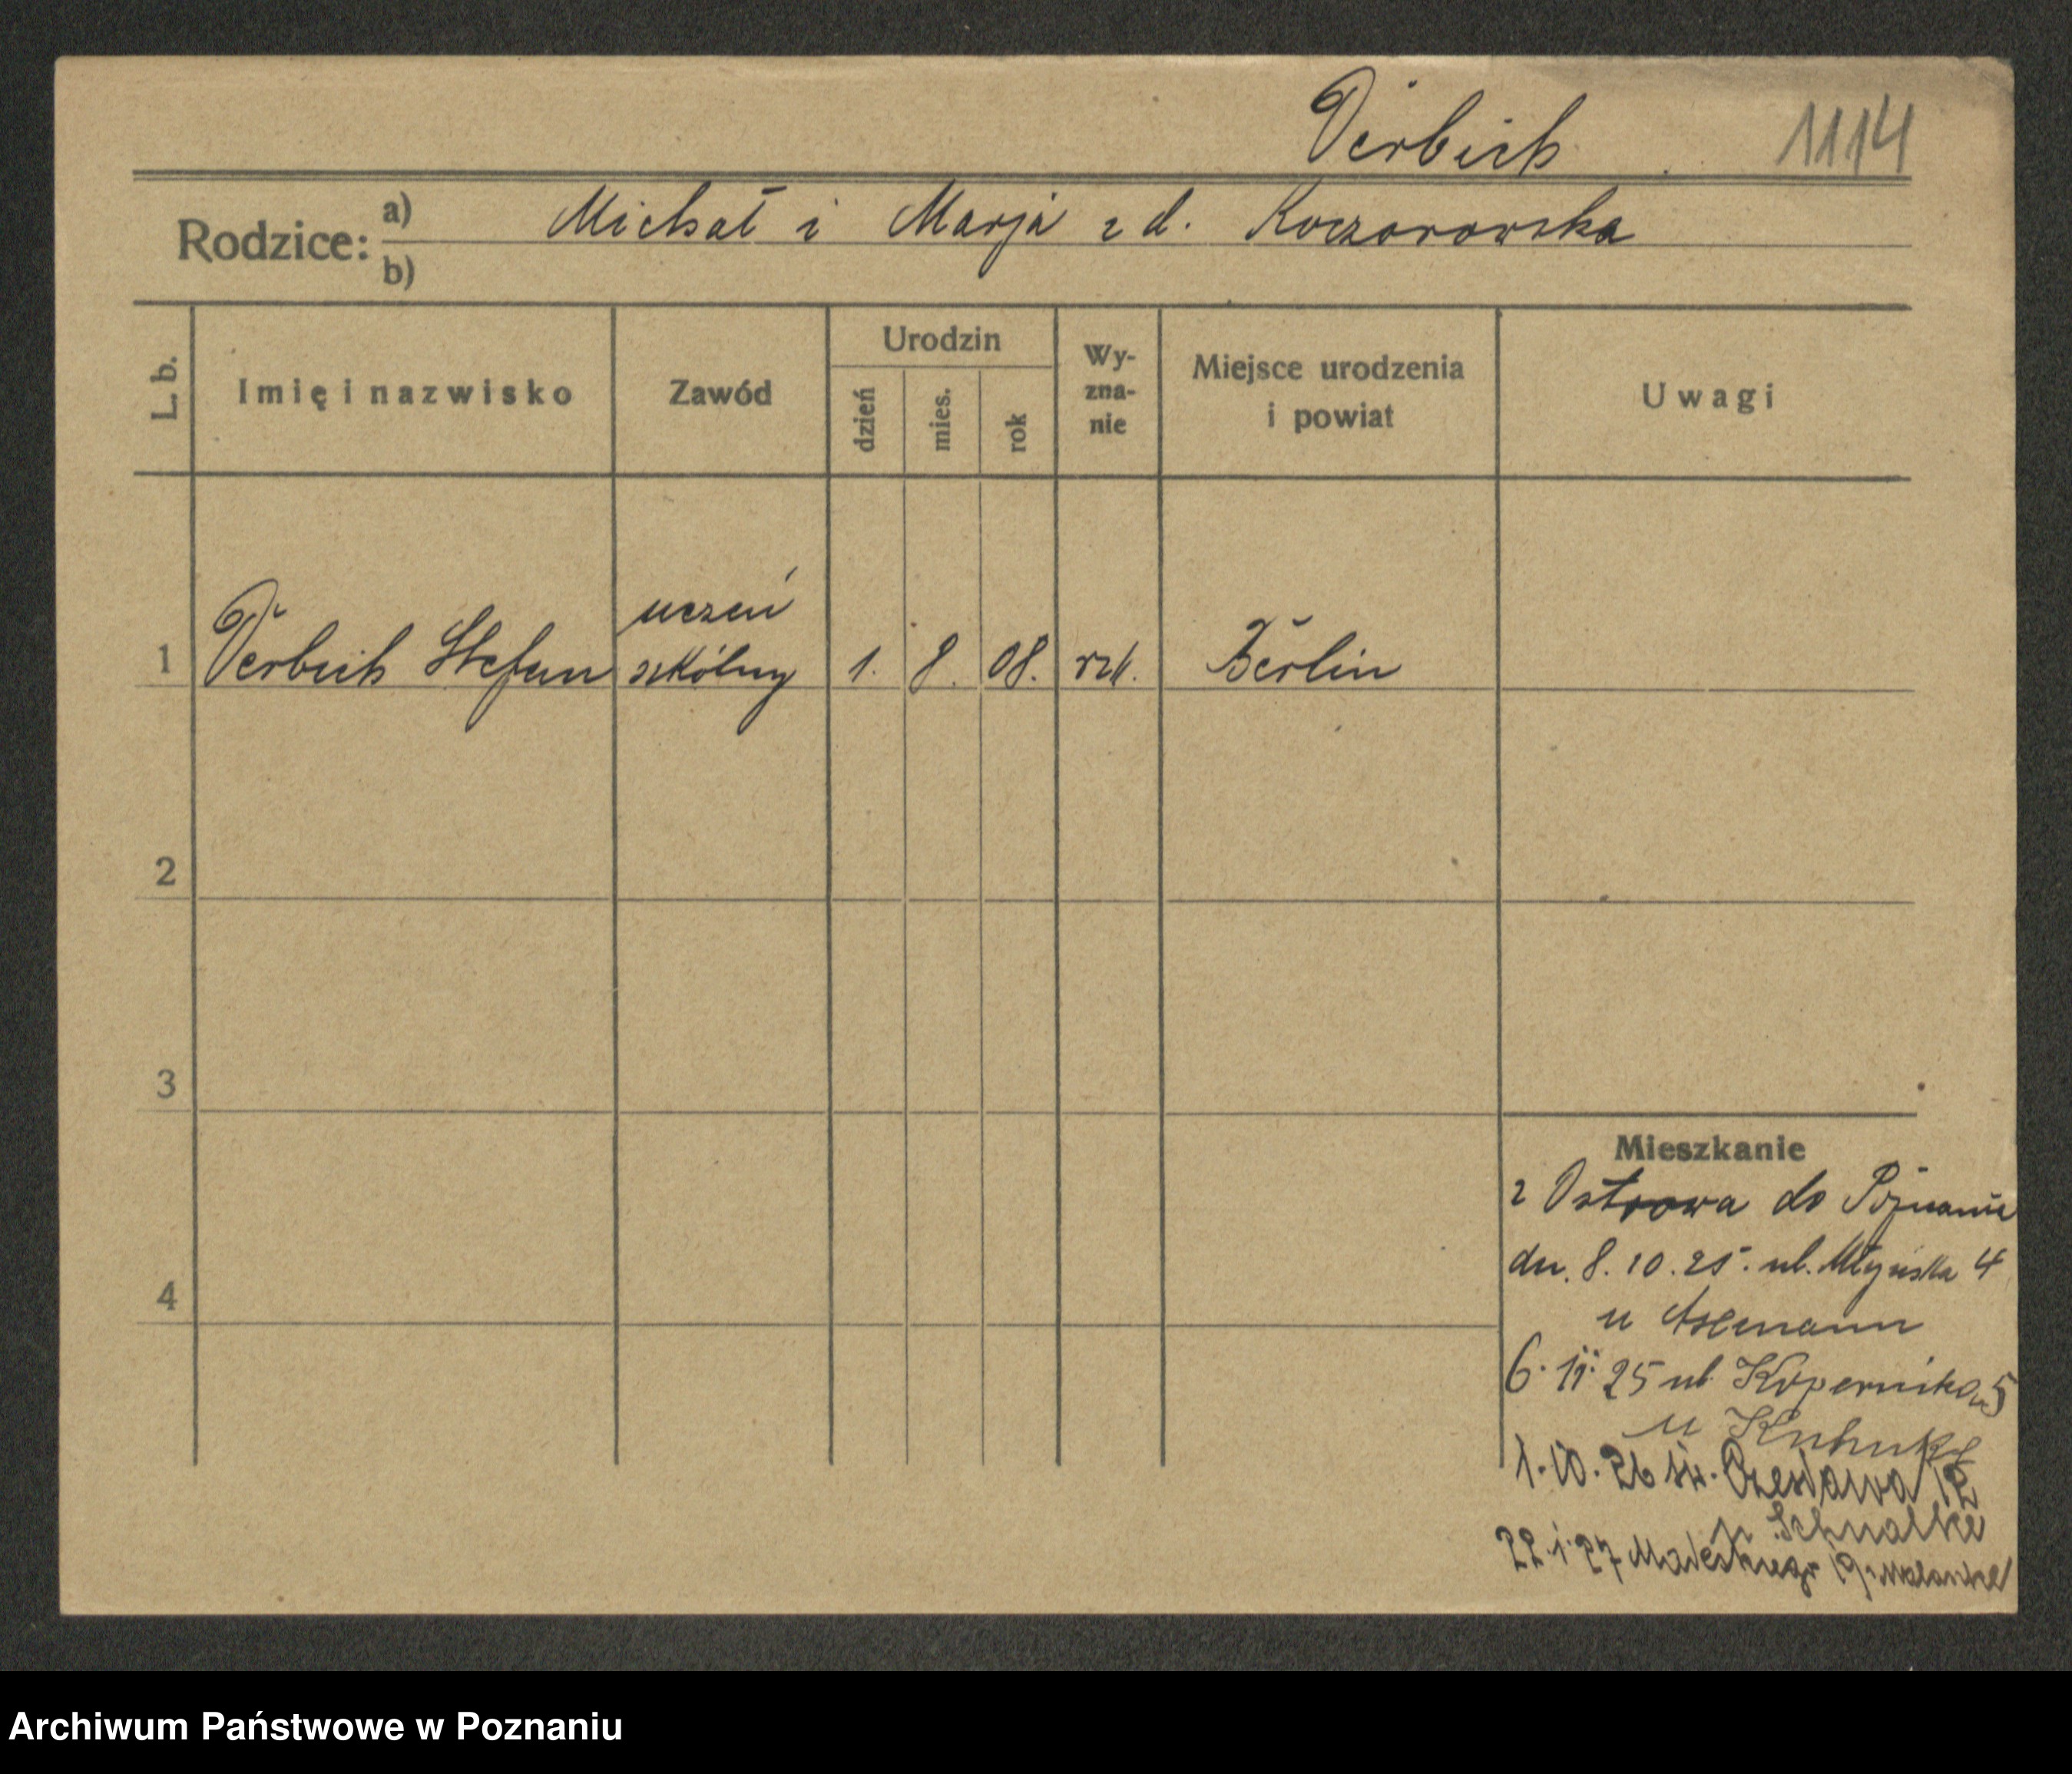 Verbich 1114
Rodzice: a) Michał i Marja z d. Koczorowska
b)
L. b. Imię i nazwisko Zawód Urodzin dzień mies. rok Wy-zna-nie Miejsce urodzenia i powiat Uwagi
uczeń
1 Verbich Stefan szkólny 1. 8. 08. rzk. Berlin
2
3
Mieszkanie
z Ostrowa do Poznania
dn. 8. 10. 25. ul. Młyńska 4
4
u Assmann
6. 11. 25 ul. Kopernika 5
u
1. 10. 26 św. Czesława 12
u Schnalke
22. 1. 27 19
Archiwum Państwowe w Poznaniu